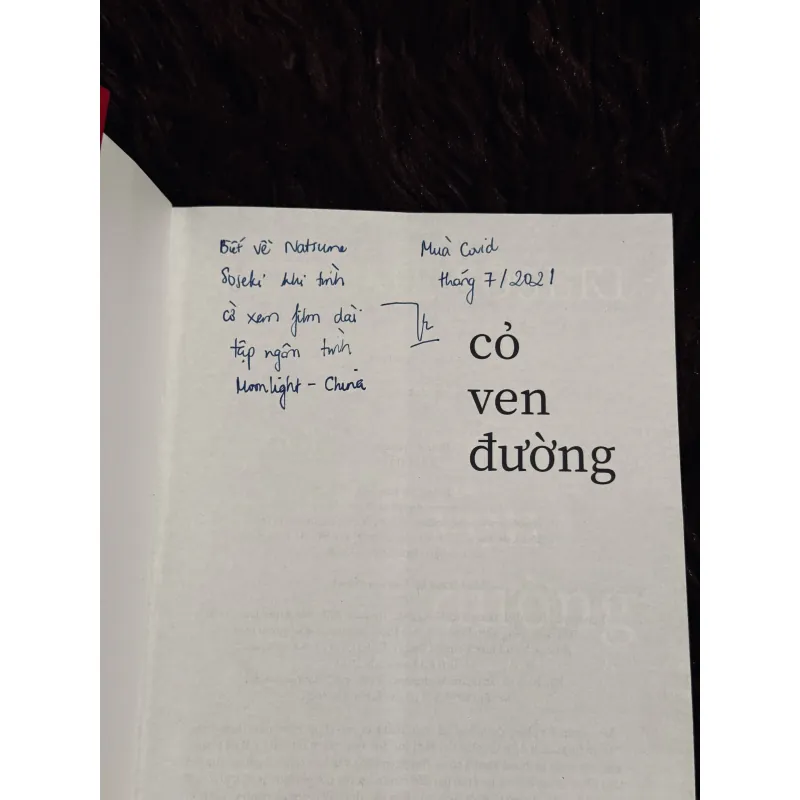 Biết về Natsume
Soseki khi tình
cờ xem film dài
tập ngôn tình
Moonlight - China
Muà Covid
tháng 7/2021
cỏ
ven
đường